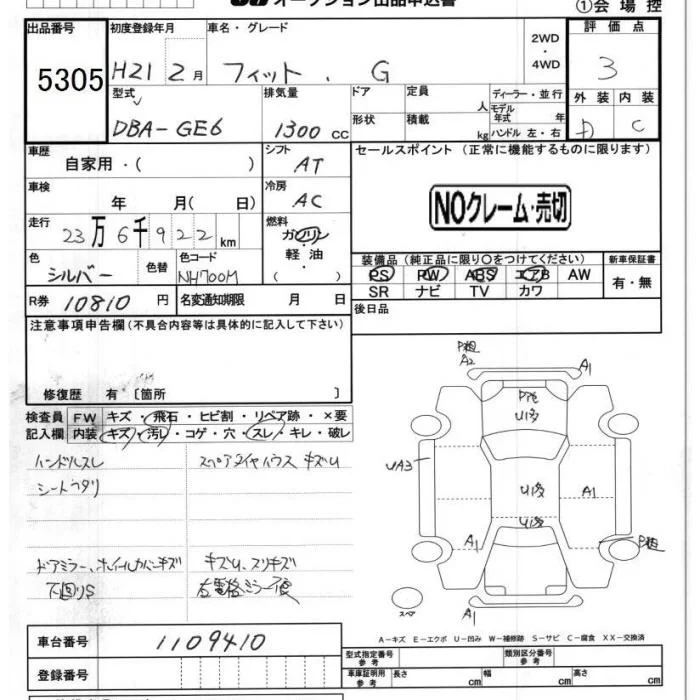 オークション出品申込書
①会場控
出品番号 5305
初度登録年月 H21 2月
車名・グレード フィット . G
2WD・4WD
評価点 3
型式 DBA-GE6
排気量 1300 cc
ドア 定員 人
形状 積載 kg
ディーラー・並行
モデル年式 年
ハンドル 左・右
外装 内装 C
車歴 自家用・( )
シフト AT
セールスポイント (正常に機能するものに限ります)
車検 年 月( 日)
冷房 AC
NOクレーム・売切
走行 23万6千922km
燃料 ガソリン・軽油・( )
色 シルバー 色替
色コード NH700M
装備品(純正品に限り○をつけてください)
新車保証書 有・無
PS PW ABS エアB AW
SR ナビ TV カワ
R券 10810 円
名変通知期限 月 日
後日品
注意事項申告欄(不具合内容等は具体的に記入して下さい)
修復歴 有〔箇所 〕
検査員記入欄
FW キズ・飛石・ヒビ割・リペア跡・×要
内装 キズ・汚レ・コゲ・穴・スレ・キレ・破レ
ハンドルスレ
スペアタイヤハウス キズU
シートヘタリ
ドアミラー、ホイールカバーキズ
キズU、スリキズ
下回りS
A2
A1
U1多
UA3
U1多
A1
U1多
A1
A1
スペア
A-キズ E-エクボ U-凹み W-補修跡 S-サビ C-腐食 XX-交換済
車台番号 1109410
登録番号
型式指定番号 参考
類別区分番号 参考
車庫証明用 参考 長さ cm 幅 cm 高さ cm